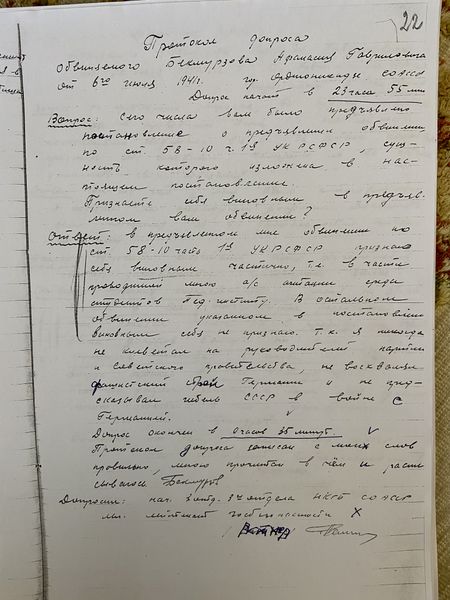 22
Протокол допроса
Обвиняемого Бекмурзова Афанасия Гавриловича
от 6го июля 1941г. гор. Орджоникидзе, СОАССР
Допрос начат в 23 часа 55 мин
Вопрос: Сего числа вам было предъявлено
постановление о предъявлении обвинения
по ст. 58-10 ч. 1я УК РСФСР, сущ-
ность которого изложена в нас-
тоящем постановлении.
Признаете себя виновным в предъяв-
ленном вам обвинении?
Ответ: в предъявленном мне обвинении по
ст. 58-10 часть 1я УК РСФСР признаю
себя виновным частично, т.е. в части
проводимой мною а/с агитации среди
студентов Пед. институту. В остальном
обвинении указанном в постановлении
виновным себя не признаю. т.к. я никогда
не клеветал на руководителей партии
и Советского правительства, не восхвалял
фашистский строй Германии и не пред-
сказывал гибель СССР в войне с
Германией.
Допрос окончен в 0 часов 35 минут.
Протокол допроса записан с моих слов
правильно, мною прочитан в чём и распи
сываюсь Бекмурзов
Допросил: нач. 3 отд. 3 отдела НКГБ СОАССР
мл. лейтенант госбезопасности